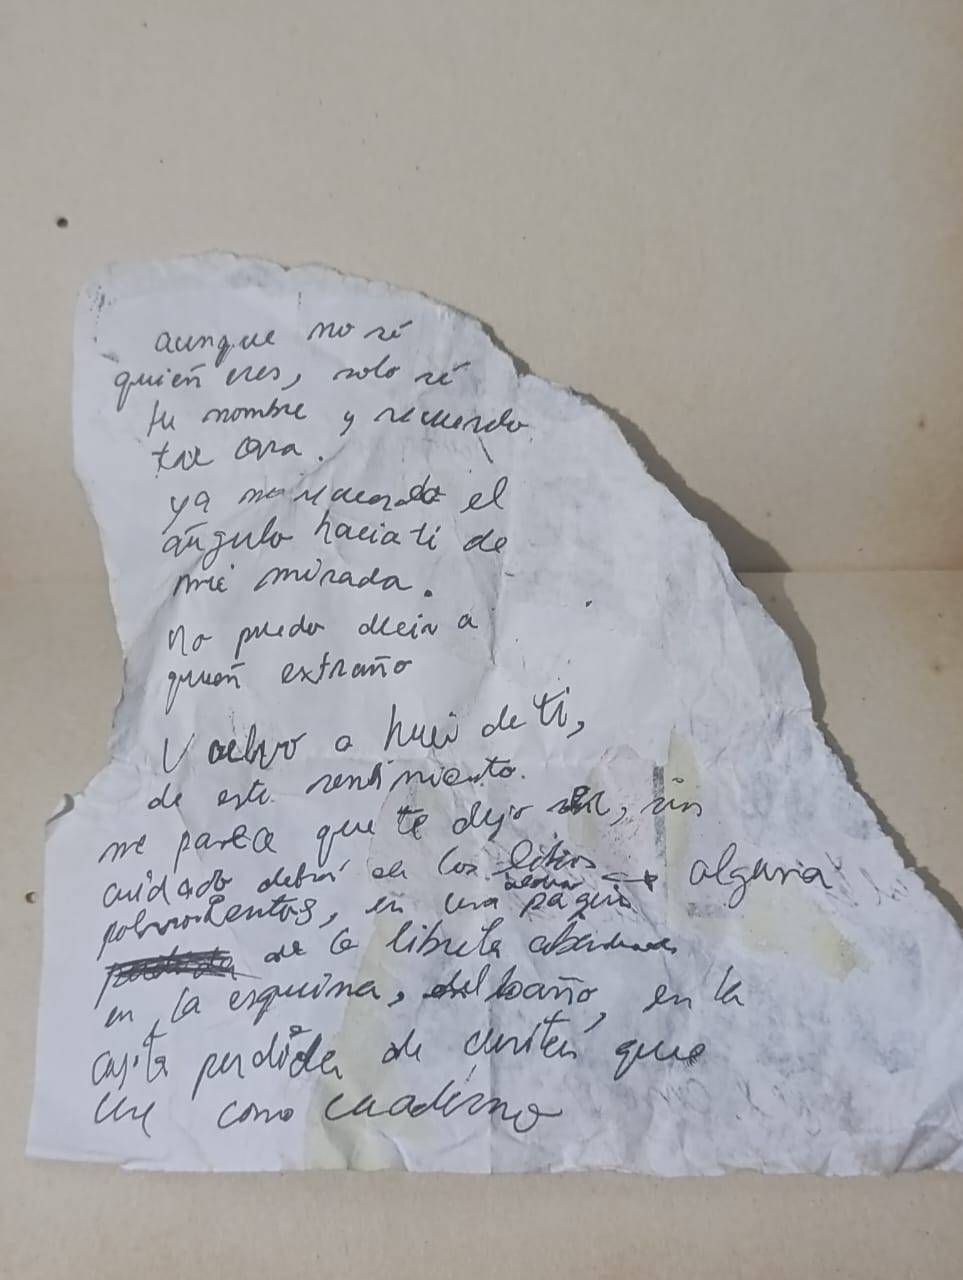 aunque no sé
quién eres, solo sé
tu nombre y recuerdo
tu cara.
ya no recuerdo el
ángulo hacia ti de
mi mirada.
No puedo decir a
quién extraño
Vuelvo a huir de ti,
de este sentimiento.
me parece que te dejo sin
cuidado detrás de los libros → alguna
polvorientos, en una página
de la libreta abandonada
en la esquina, del baño, en la
cajita perdida de que
use como cuaderno